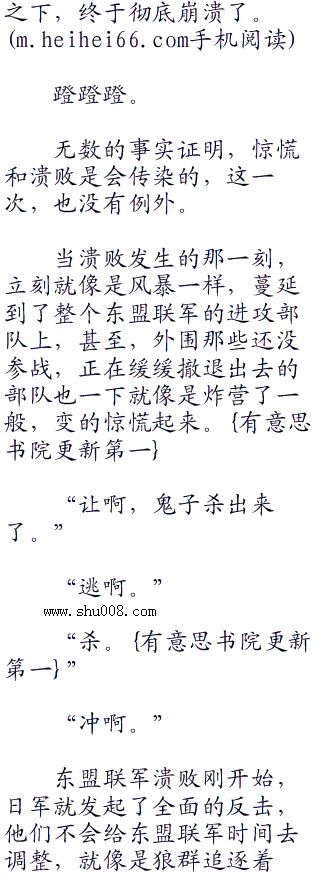 之下，终于彻底崩溃了。
(m.heihei66.com手机阅读)
蹬蹬蹬。
无数的事实证明，惊慌
和溃败是会传染的，这一
次，也没有例外。
当溃败发生的那一刻，
立刻就像是风暴一样，蔓延
到了整个东盟联军的进攻部
队上，甚至，外围那些还没
参战，正在缓缓撤退出去的
部队也一下就像是炸营了一
般，变的惊慌起来。{有意思
书院更新第一}
“让啊，鬼子杀出来
了。”
“逃啊。”
www.shu008.com
“杀。{有意思书院更新
第一}”
“冲啊。”
东盟联军溃败刚开始，
日军就发起了全面的反击，
他们不会给东盟联军时间去
调整，就像是狼群追逐着